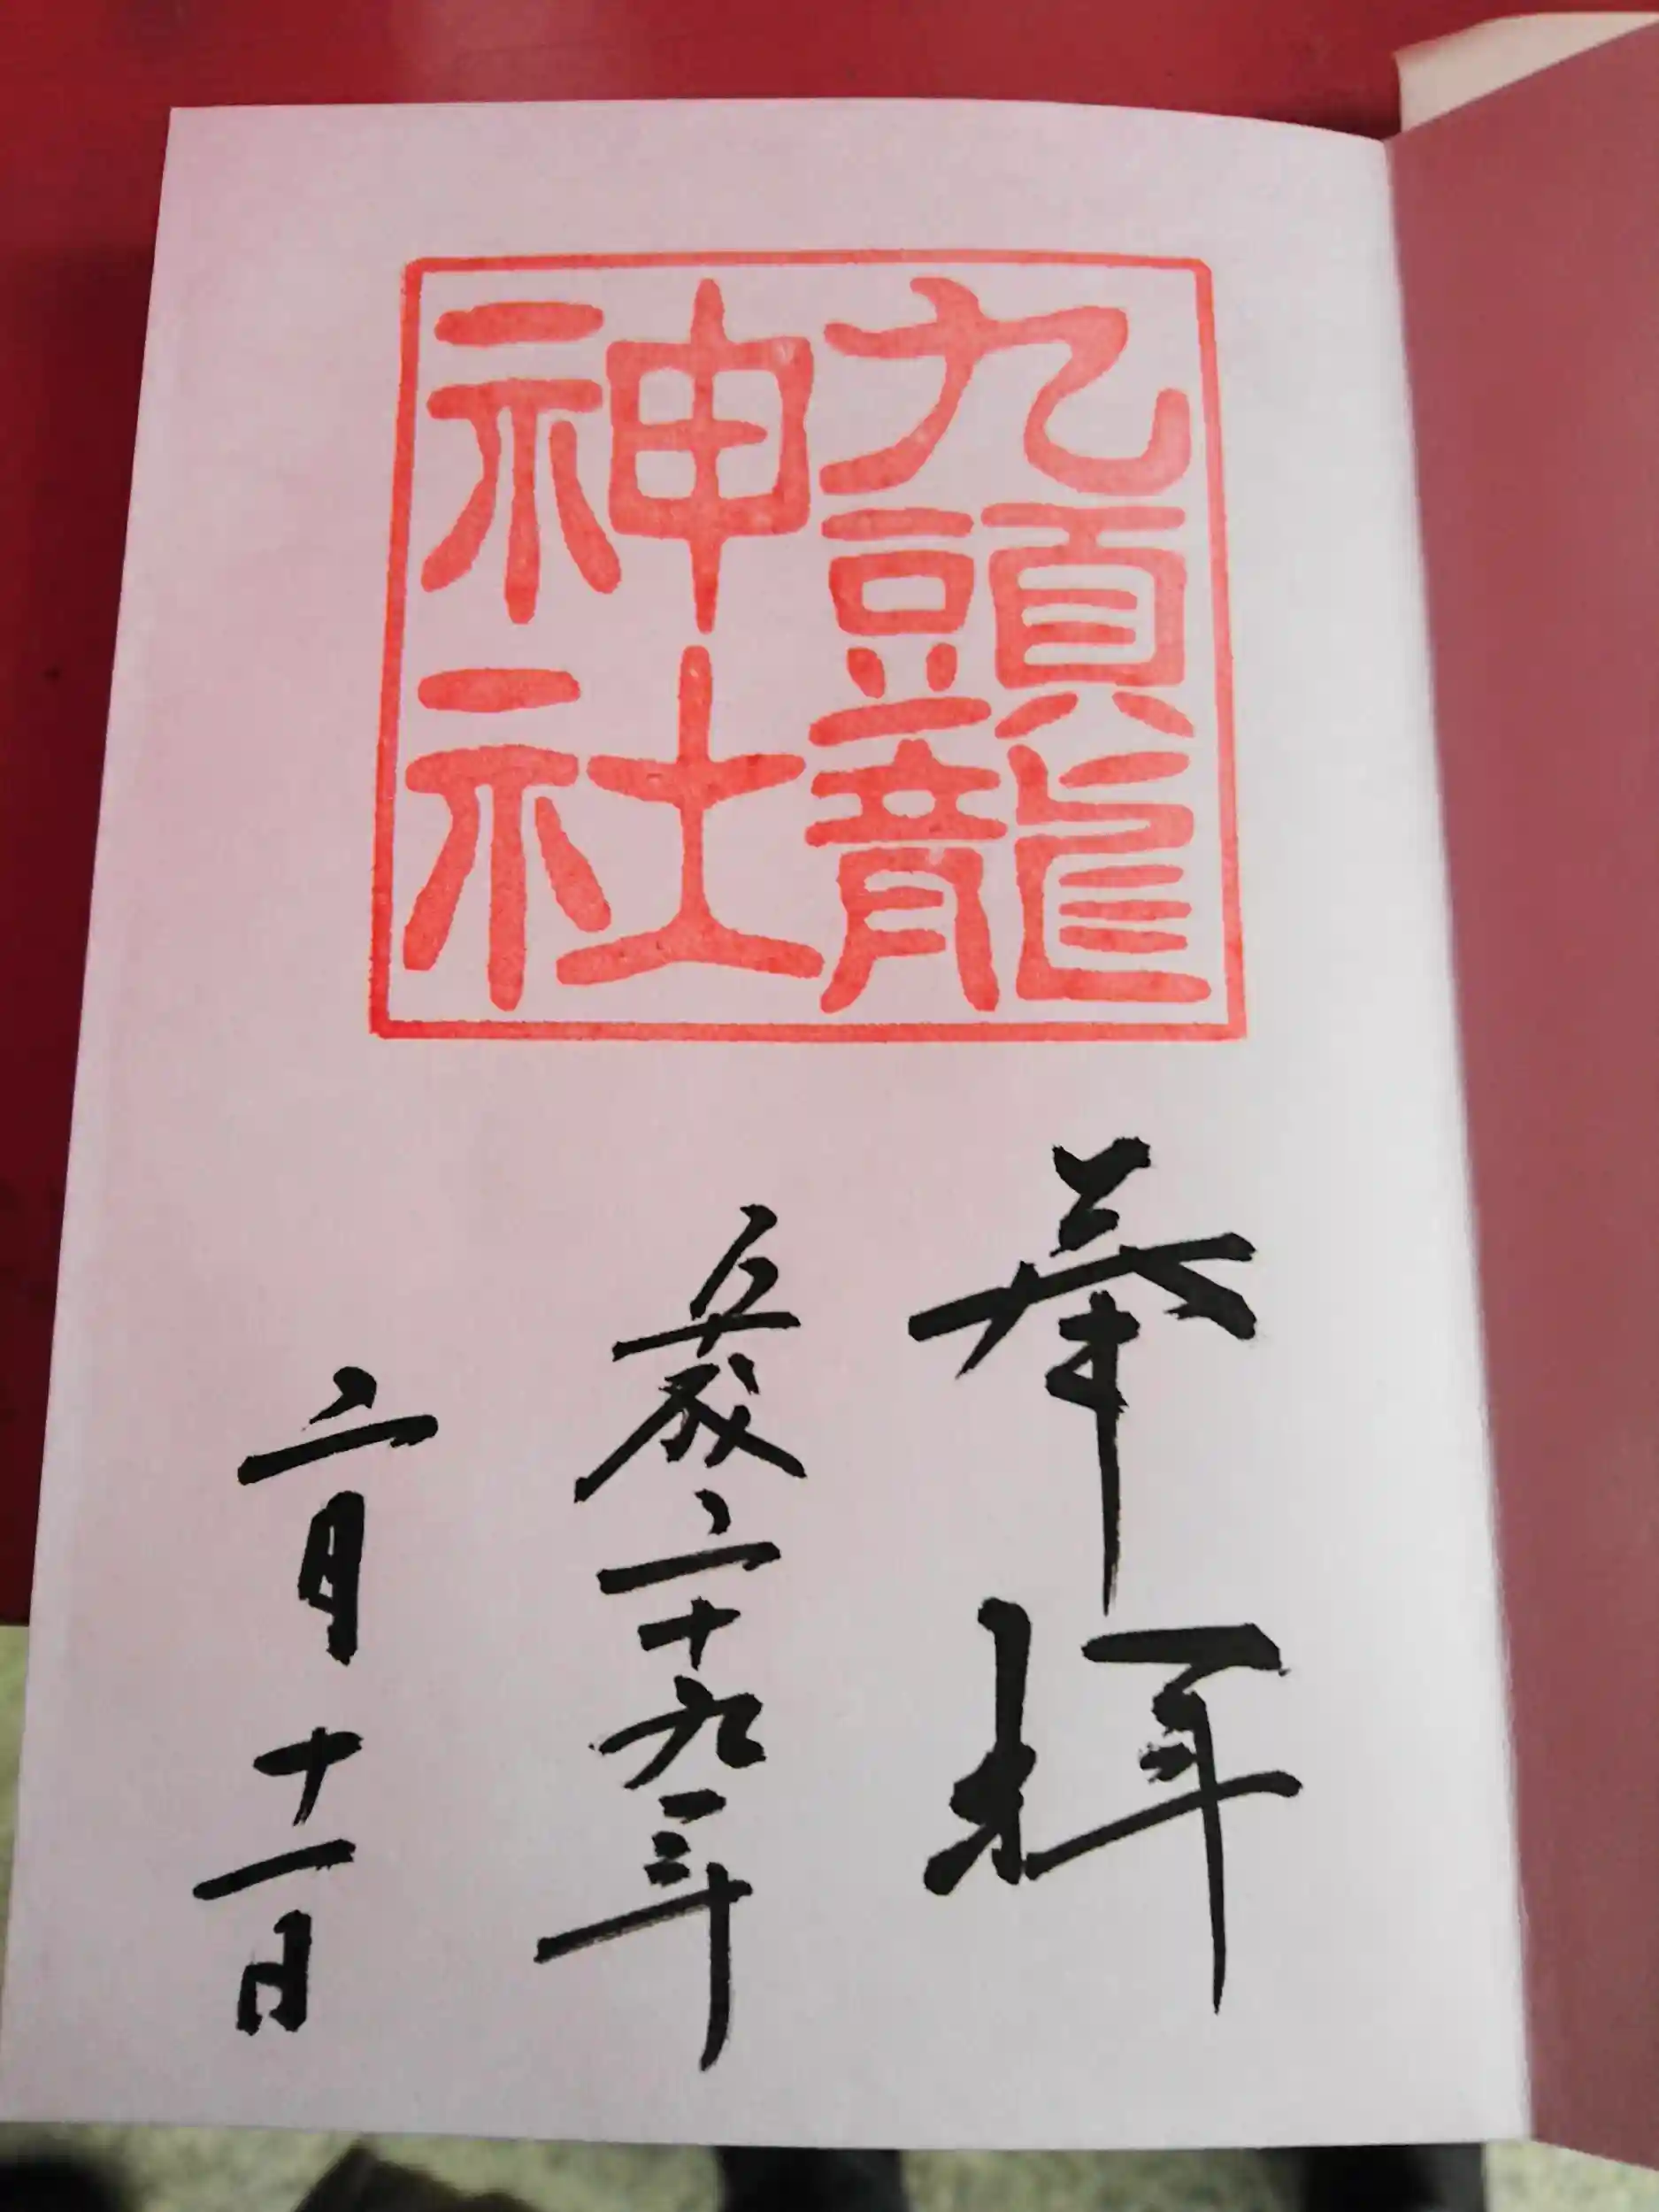 九頭龍
神社
奉拝
平成二十九年
二月十一日